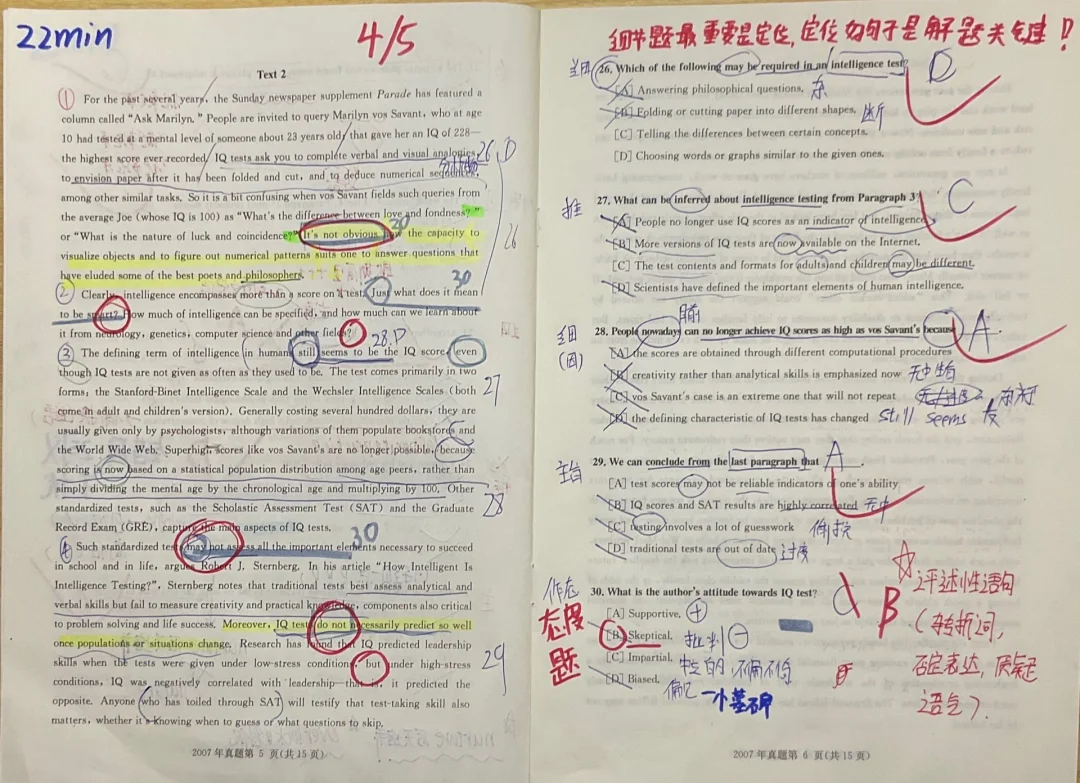 22min
4/5
Text 2
① For the past several years, the Sunday newspaper supplement Parade has featured a
column called “Ask Marilyn.” People are invited to query Marilyn vos Savant, who at age
10 had tested at a mental level of someone about 23 years old; that gave her an IQ of 228—
the highest score ever recorded. IQ tests ask you to complete verbal and visual analogies,
to envision paper after it has been folded and cut, and to deduce numerical sequences,
among other similar tasks. So it is a bit confusing when vos Savant fields such queries from
the average Joe (whose IQ is 100) as “What's the difference between love and fondness?”
or “What is the nature of luck and coincidence?” It's not obvious how the capacity to
visualize objects and to figure out numerical patterns suits one to answer questions that
have eluded some of the best poets and philosophers.
② Clearly, intelligence encompasses more than a score on a test. Just what does it mean
to be smart? How much of intelligence can be specified, and how much can we learn about
it from neurology, genetics, computer science and other fields?
③ The defining term of intelligence in humans still seems to be the IQ score, even
though IQ tests are not given as often as they used to be. The test comes primarily in two
forms: the Stanford-Binet Intelligence Scale and the Wechsler Intelligence Scales (both
come in adult and children's version). Generally costing several hundred dollars, they are
usually given only by psychologists, although variations of them populate bookstores and
the World Wide Web. Superhigh scores like vos Savant's are no longer possible, because
scoring is now based on a statistical population distribution among age peers, rather than
simply dividing the mental age by the chronological age and multiplying by 100. Other
standardized tests, such as the Scholastic Assessment Test (SAT) and the Graduate
Record Exam (GRE), capture the main aspects of IQ tests.
④ Such standardized tests may not assess all the important elements necessary to succeed
in school and in life, argues Robert J. Sternberg. In his article “How Intelligent Is
Intelligence Testing?”, Sternberg notes that traditional tests best assess analytical and
verbal skills but fail to measure creativity and practical knowledge, components also critical
to problem solving and life success. Moreover, IQ tests do not necessarily predict so well
once populations or situations change. Research has found that IQ predicted leadership
skills when the tests were given under low-stress conditions, but under high-stress
conditions, IQ was negatively correlated with leadership—that is, it predicted the
opposite. Anyone who has toiled through SAT will testify that test-taking skill also
matters, whether it's knowing when to guess or what questions to skip.
26 D
26
30
30
28.D
27
28
30
29
2007 年真题第 5 页(共 15 页)
细节题最重要是定位, 定位的句子是解题关键!
26. Which of the following may be required in an intelligence test? D
[A] Answering philosophical questions. 杂
[B] Folding or cutting paper into different shapes. 断
[C] Telling the differences between certain concepts.
[D] Choosing words or graphs similar to the given ones.
推 27. What can be inferred about intelligence testing from Paragraph 3? C
[A] People no longer use IQ scores as an indicator of intelligence.
[B] More versions of IQ tests are now available on the Internet.
[C] The test contents and formats for adults and children may be different.
[D] Scientists have defined the important elements of human intelligence.
细(因) 28. People nowadays can no longer achieve IQ scores as high as vos Savant's because A
[A] the scores are obtained through different computational procedures
[B] creativity rather than analytical skills is emphasized now 无中生有
[C] vos Savant's case is an extreme one that will not repeat
[D] the defining characteristic of IQ tests has changed still seems 反
主旨 29. We can conclude from the last paragraph that A.
[A] test scores may not be reliable indicators of one's ability
[B] IQ scores and SAT results are highly correlated 无中
[C] testing involves a lot of guesswork 偷换
[D] traditional tests are out of date 过度
作态 30. What is the author's attitude towards IQ test?
态度题
[A] Supportive. +
[B] Skeptical. 批判 -
[C] Impartial. 中立的 不偏不倚
[D] Biased. 偏见 一个墓碑
B
☆ 评述性语句
(转折词,
否定表达, 质疑
语气).
2007 年真题第 6 页(共 15 页)